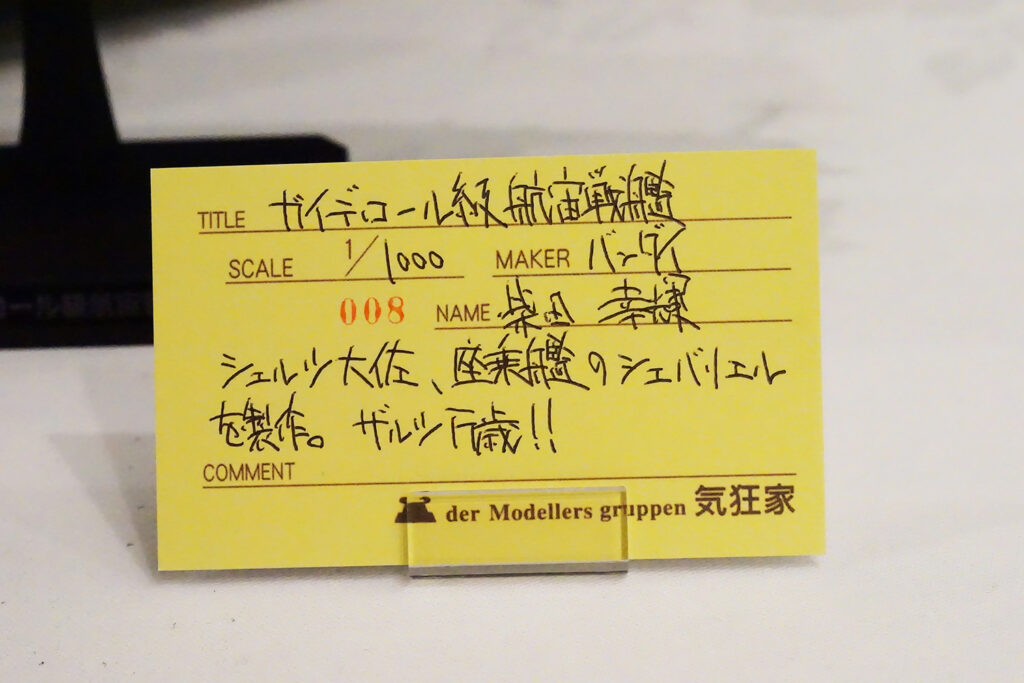 TITLE ガイデロール級航宙戦艦
SCALE 1/1000 MAKER バンダイ
008 NAME 柴田 幸
シェルツ大佐、座乗艦のシュバリエル
を製作。ザルツ万歳!!
COMMENT
der Modellers gruppen 気狂家